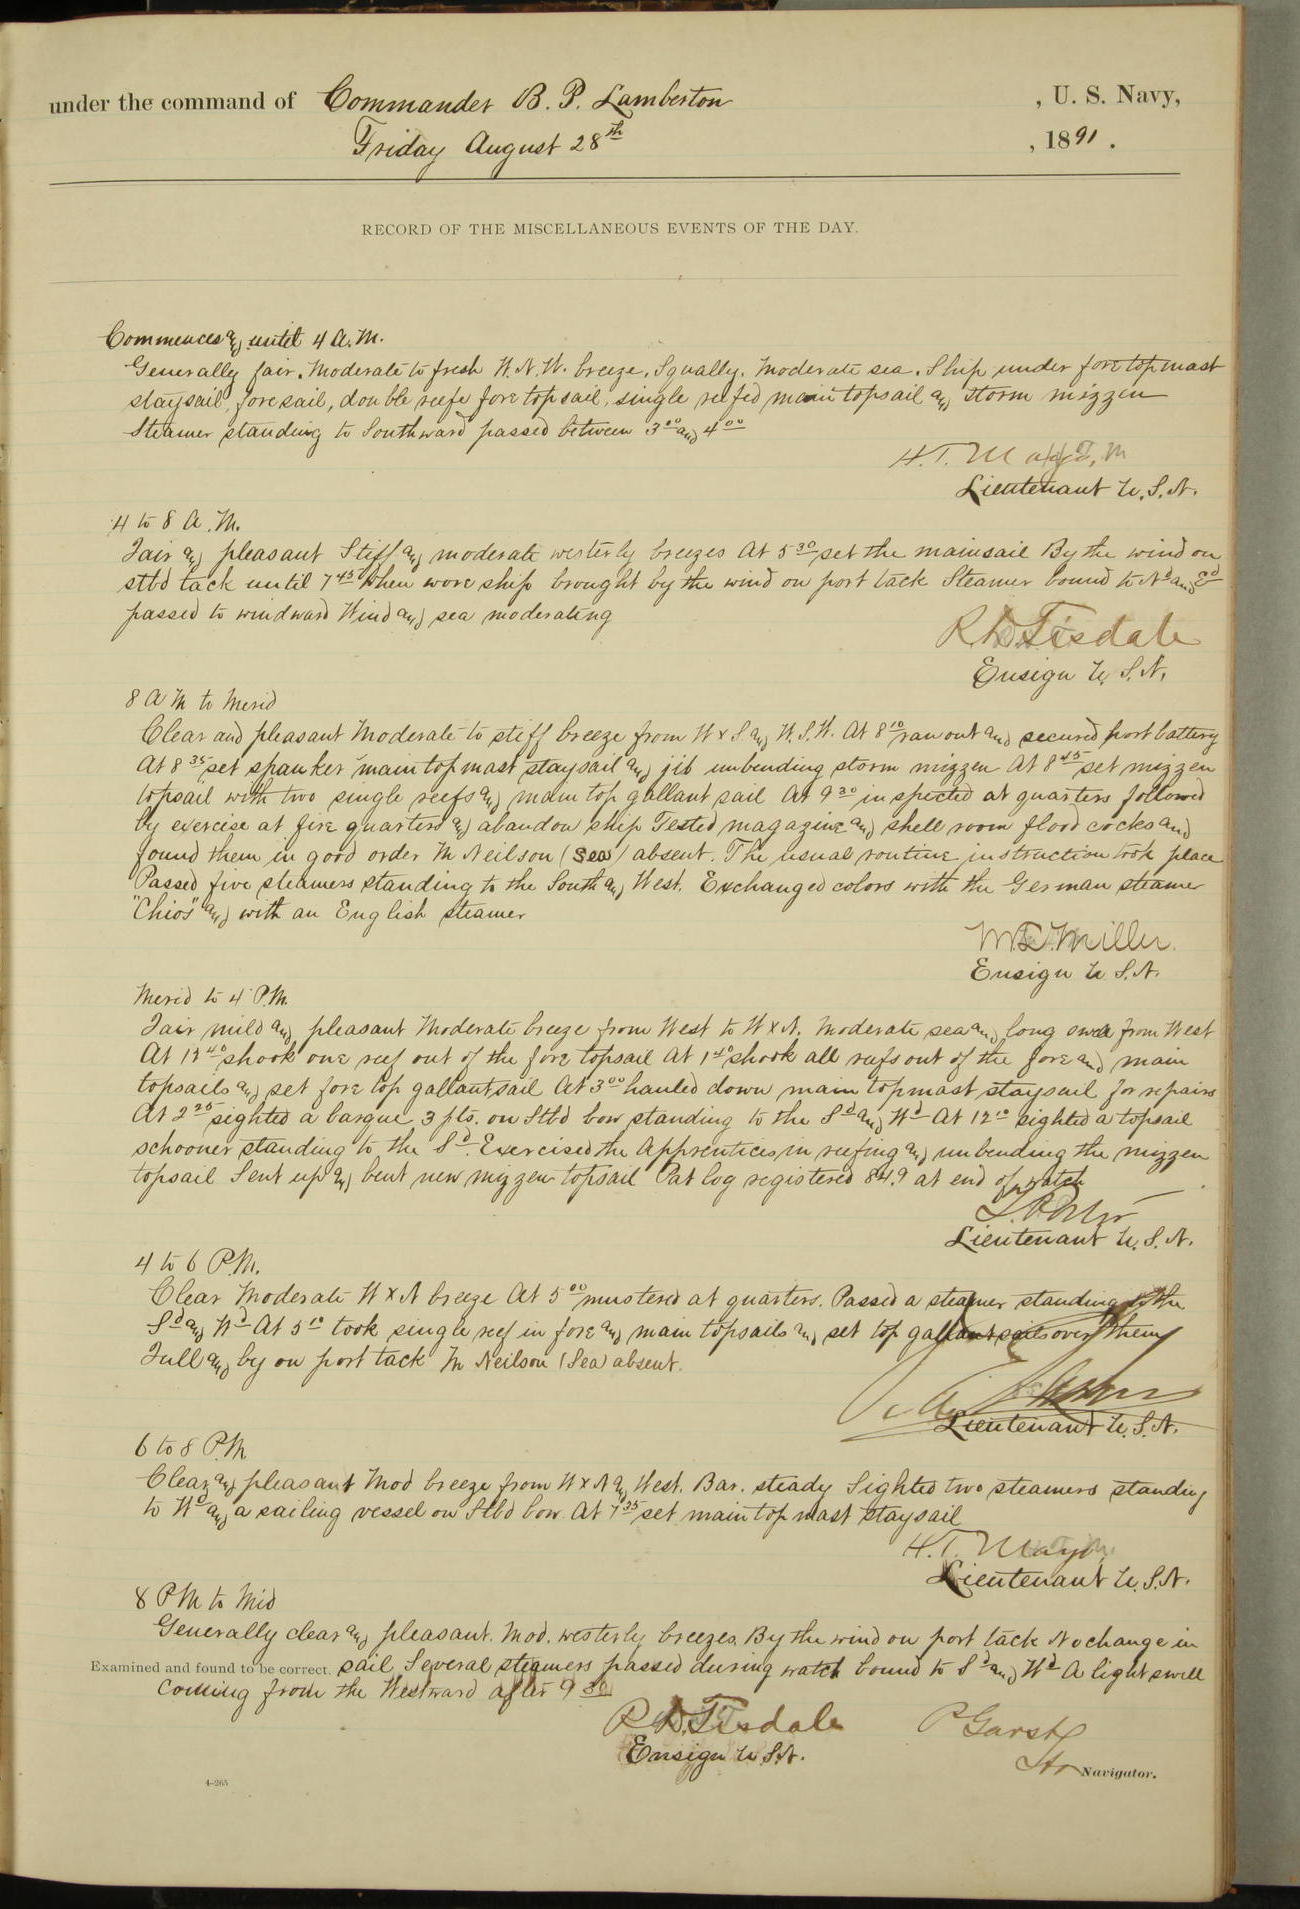 under the command of Commander B. P. Lamberton , U. S. Navy,
Friday August 28th , 1891 .
RECORD OF THE MISCELLANEOUS EVENTS OF THE DAY.
Commences and until 4 A.M.
Generally fair. Moderate to fresh W.N.W. breeze. Squally. Moderate sea. Ship under fore topmast
staysail, foresail, double reefe fore topsail, single reefed main topsail and storm mizzen
Steamer standing to Southward passed between 3 00 and 4 00
H. T. M
Lieutenant U.S.N.
4 to 8 A.M.
Fair and pleasant Stiff and moderate westerly breezes At 5 30 set the mainsail By the wind on
stbd tack until 7 45 When wore ship brought by the wind on port tack Steamer bound to Nd and Ed
passed to windward Wind and sea moderating
R D Tisdale
Ensign U. S. N.
8 A M to Merid
Clear and pleasant Moderate to stiff breeze from W x S and W.S.W. At 8 10 ran out and secured port battery
At 8 35 set spanker main topmast staysail and jib unbending storm mizzen At 8 45 set mizzen
topsail with two single reefs and main top gallant sail At 9 30 inspected at quarters followed
by exercise at fire quarters and abandon ship Tested magazine and shell room flood cocks and
found them in good order M Neilson (Sea) absent. The usual routine instruction took place
Passed five steamers standing to the South and West. Exchanged colors with the German steamer
"Chios" and with an English steamer
Miller
Ensign U S.N.
Merid to 4 P.M.
Fair mild and pleasant Moderate breeze from West to W x N. Moderate sea and long swell from West
At 12 40 shook one reef out of the fore topsail At 1 40 shook all reefs out of the fore and main
topsails and set fore top gallantsail At 3 00 hauled down main topmast staysail for repairs
At 2 25 sighted a barque 3 pts. on Stbd bow standing to the Sd and Wd At 12 10 sighted a topsail
schooner standing to the Sd. Exercised the Apprentices in reefing and unbending the mizzen
topsail Sent up and bent new mizzen topsail Pat log registered 84.9 at end of watch
Lieutenant U. S. N.
4 to 6 P.M.
Clear Moderate W x N breeze At 5 00 mustered at quarters. Passed a steamer standing to the
Sd and Wd At 5 10 took single reef in fore and main topsails and set top gallant sails over them
Full and by on port tack M Neilson (Sea) absent.
Lieutenant U.S.N.
6 to 8 P.M
Clear and pleasant Mod breeze from W x N and West. Bar. steady Sighted two steamers standing
to Wd and a sailing vessel on Stbd bow. At 7 35 set main topmast staysail
H. T. Mayo
Lieutenant U.S.N.
8 P M to Mid
Generally clear and pleasant. Mod. westerly breezes. By the wind on port tack No change in
Examined and found to be correct. sail Several steamers passed during watch bound to Sd and Wd A light swell
coming from the Westward after 9 30
R D Tisdale P Garst
Ensign U.S.N. Navigator.
4-265